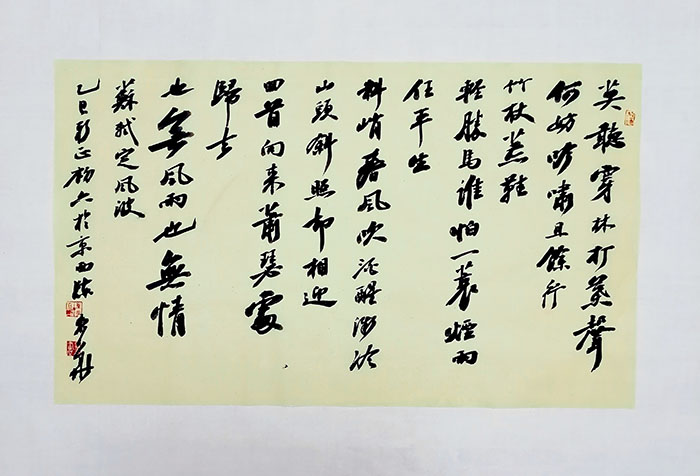 莫聽穿林打葉聲
何妨吟嘯且餘行
竹杖芒鞋
輕勝馬誰怕一蓑煙雨
任平生
料峭春風吹酒醒微冷
山頭斜照却相迎
回首向来蕭瑟處
歸去
也無風雨也無情
蘇軾定風波
乙巳新正初六於京西